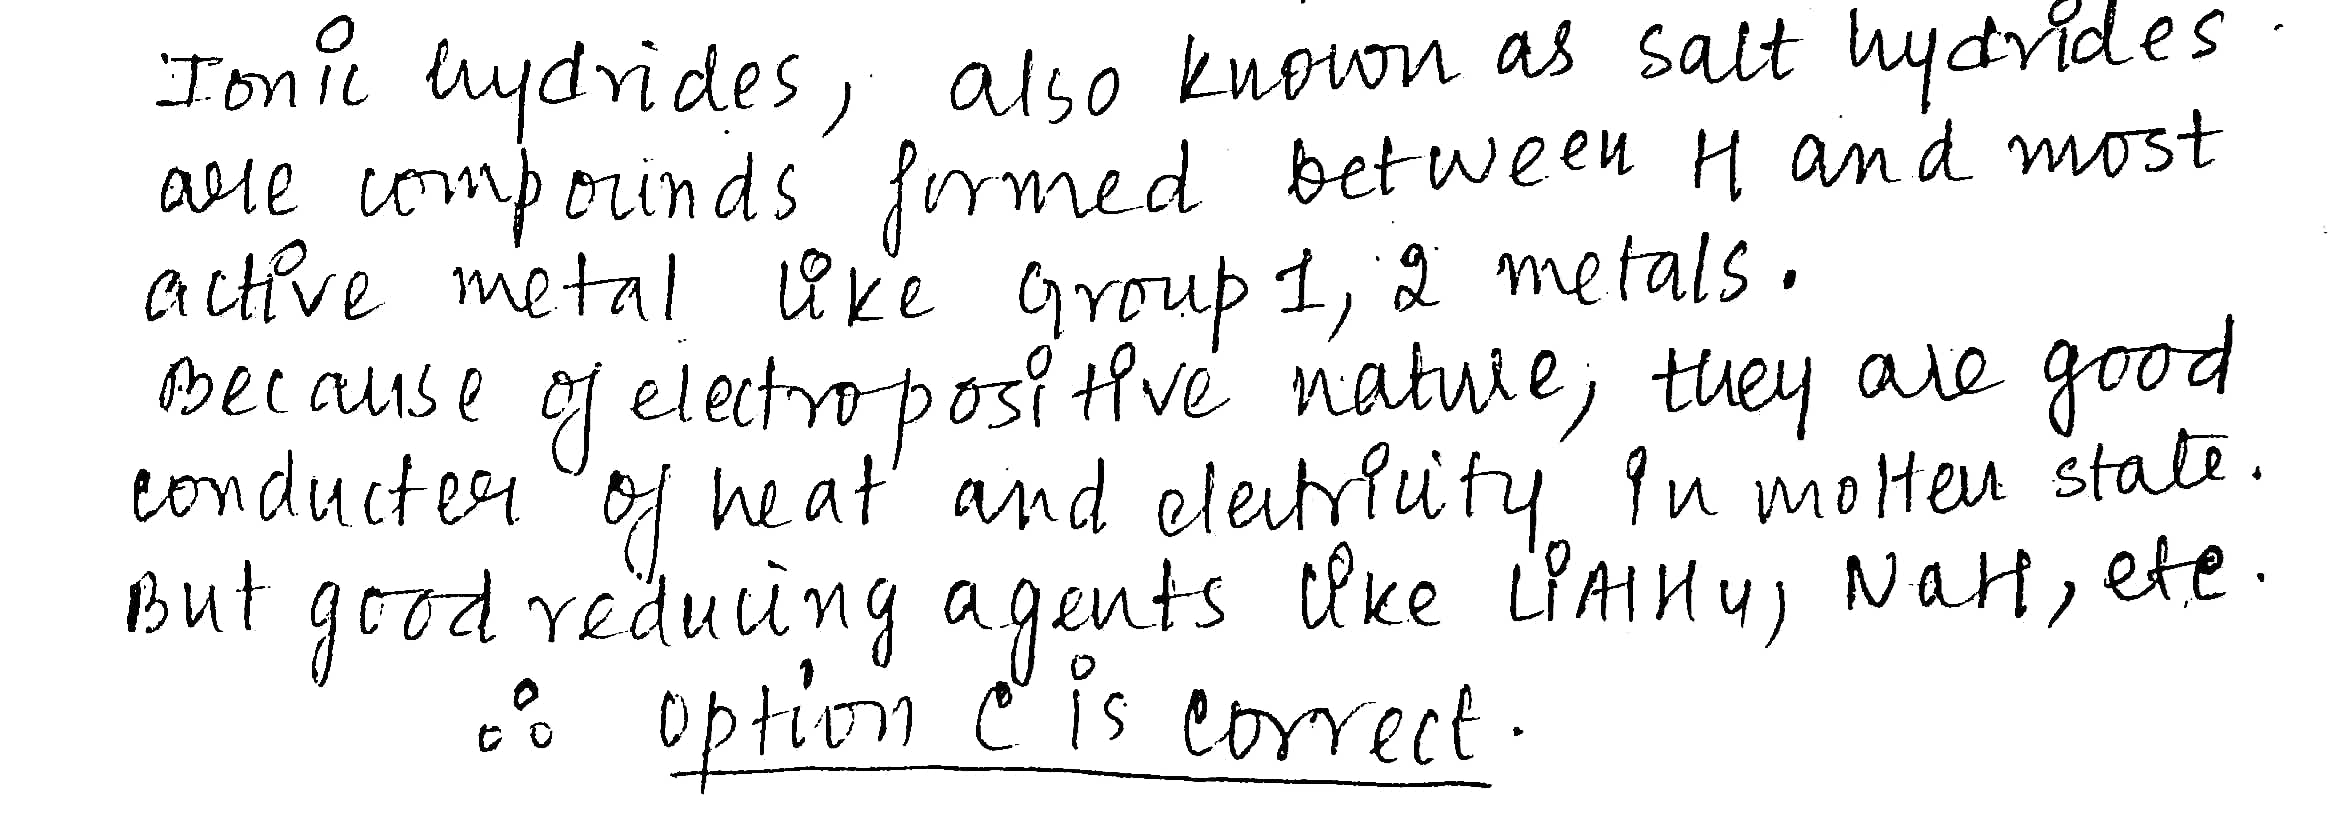 Ionic hydrides, also known as salt hydrides
are compounds formed between H and most
active metal like Group 1, 2 metals.
Because of electropositive nature, they are good
conducter of heat and electricity in molten state.
But good reducing agents like LiAlH4, NaH, etc.
∴ option C is correct.